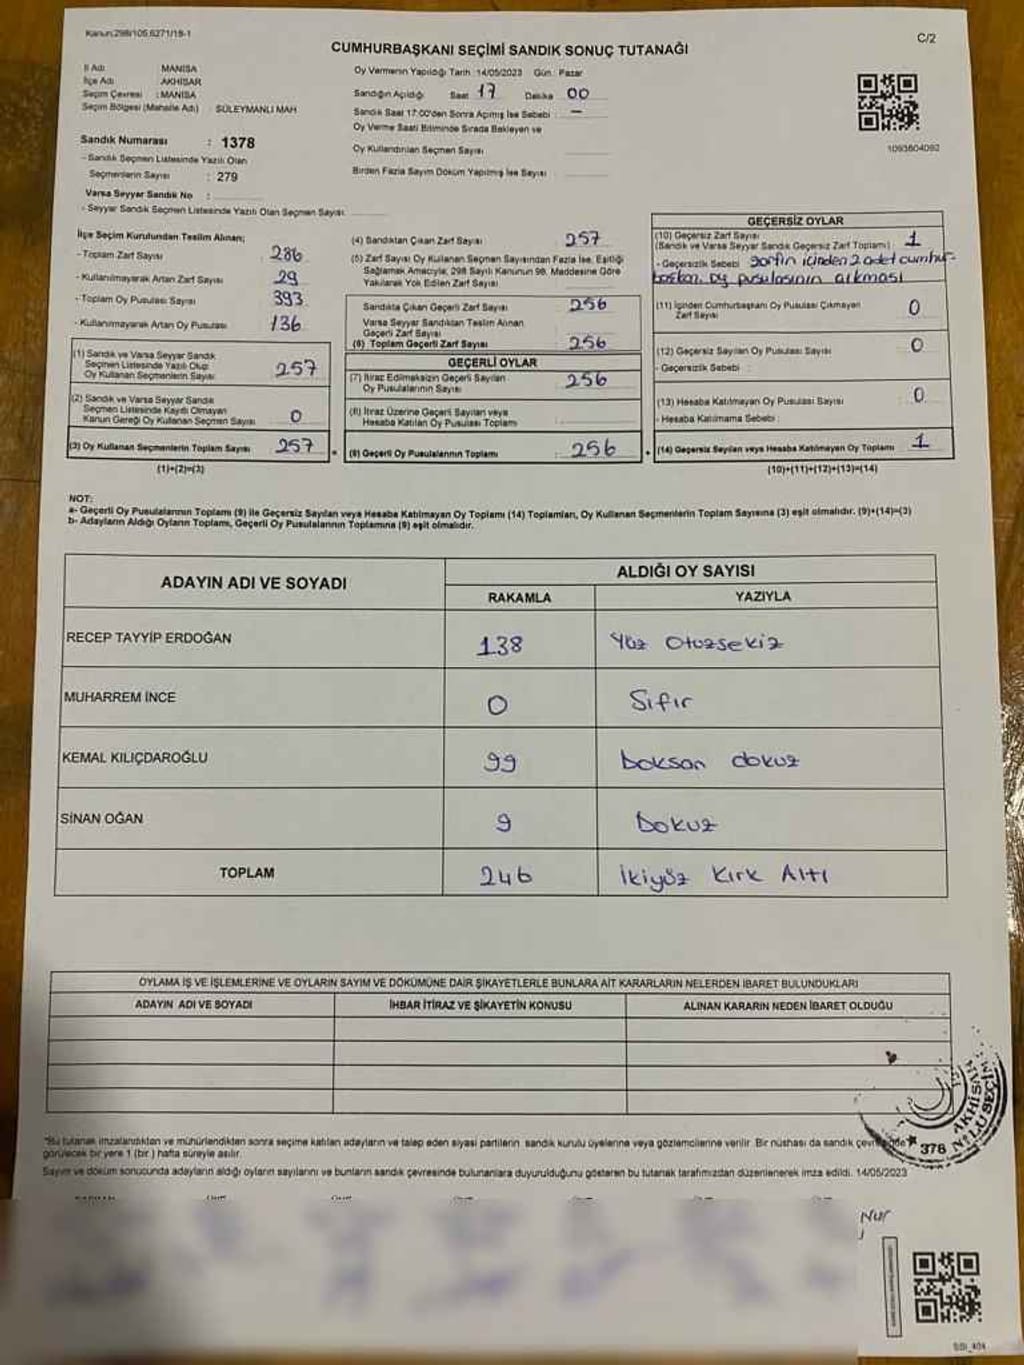 Kanun:298/105,6271/18-1
C/2
CUMHURBAŞKANI SEÇİMİ SANDIK SONUÇ TUTANAĞI
İl Adı MANİSA
İlçe Adı AKHİSAR
Seçim Çevresi : MANİSA
Seçim Bölgesi (Mahalle Adı) SÜLEYMANLI MAH
Sandık Numarası : 1378
- Sandık Seçmen Listesinde Yazılı Olan
Seçmenlerin Sayısı : 279
Varsa Seyyar Sandık No :
- Seyyar Sandık Seçmen Listesinde Yazılı Olan Seçmen Sayısı
Oy Vermenin Yapıldığı Tarih :14/05/2023 Gün : Pazar
Sandığın Açıldığı Saat 17 Dakika 00
Sandık Saat 17:00'den Sonra Açılmış İse Sebebi : —
Oy Verme Saati Bitiminde Sırada Bekleyen ve
Oy Kullandırılan Seçmen Sayısı
Birden Fazla Sayım Döküm Yapılmış İse Sayısı
1093604092
İlçe Seçim Kurulundan Teslim Alınan;
- Toplam Zarf Sayısı 286
- Kullanılmayarak Artan Zarf Sayısı 29
- Toplam Oy Pusulası Sayısı 393
- Kullanılmayarak Artan Oy Pusulası 136
(1) Sandık ve Varsa Seyyar Sandık
Seçmen Listesinde Yazılı Olup
Oy Kullanan Seçmenlerin Sayısı 257
(2) Sandık ve Varsa Seyyar Sandık
Seçmen Listesinde Kaydı Olmayan
Kanun Gereği Oy Kullanan Seçmen Sayısı 0
(3) Oy Kullanan Seçmenlerin Toplam Sayısı 257
(1)+(2)=(3)
(4) Sandıktan Çıkan Zarf Sayısı 257
(5) Zarf Sayısı Oy Kullanan Seçmen Sayısından Fazla İse, Eşitliği
Sağlamak Amacıyla; 298 Sayılı Kanunun 98. Maddesine Göre
Yakılarak Yok Edilen Zarf Sayısı
Sandıkta Çıkan Geçerli Zarf Sayısı 256
Varsa Seyyar Sandıktan Teslim Alınan
Geçerli Zarf Sayısı
(6) Toplam Geçerli Zarf Sayısı 256
GEÇERLİ OYLAR
(7) İtiraz Edilmeksizin Geçerli Sayılan
Oy Pusulalarının Sayısı 256
(8) İtiraz Üzerine Geçerli Sayılan veya
Hesaba Katılan Oy Pusulası Toplamı
(9) Geçerli Oy Pusulalarının Toplamı : 256
GEÇERSİZ OYLAR
(10) Geçersiz Zarf Sayısı
(Sandık ve Varsa Seyyar Sandık Geçersiz Zarf Toplamı) 1
- Geçersizlik Sebebi zarfın içinden 2 adet cumhur-
başkan oy pusulasının çıkması
(11) İçinden Cumhurbaşkanı Oy Pusulası Çıkmayan
Zarf Sayısı 0
(12) Geçersiz Sayılan Oy Pusulası Sayısı 0
- Geçersizlik Sebebi :
(13) Hesaba Katılmayan Oy Pusulası Sayısı 0
- Hesaba Katılmama Sebebi :
(14) Geçersiz Sayılan veya Hesaba Katılmayan Oy Toplamı 1
(10)+(11)+(12)+(13)=(14)
NOT:
a- Geçerli Oy Pusulalarının Toplamı (9) ile Geçersiz Sayılan veya Hesaba Katılmayan Oy Toplamı (14) Toplamları, Oy Kullanan Seçmenlerin Toplam Sayısına (3) eşit olmalıdır. (9)+(14)=(3)
b- Adayların Aldığı Oyların Toplamı, Geçerli Oy Pusulalarının Toplamına (9) eşit olmalıdır.
ADAYIN ADI VE SOYADI ALDIĞI OY SAYISI
RAKAMLA YAZIYLA
RECEP TAYYİP ERDOĞAN 138 Yüz Otuzsekiz
MUHARREM İNCE 0 Sıfır
KEMAL KILIÇDAROĞLU 99 Doksan dokuz
SİNAN OĞAN 9 Dokuz
TOPLAM 246 İkiyüz Kırk Altı
OYLAMA İŞ VE İŞLEMLERİNE VE OYLARIN SAYIM VE DÖKÜMÜNE DAİR ŞİKAYETLERLE BUNLARA AİT KARARLARIN NELERDEN İBARET BULUNDUKLARI
ADAYIN ADI VE SOYADI İHBAR İTİRAZ VE ŞİKAYETİN KONUSU ALINAN KARARIN NEDEN İBARET OLDUĞU
*Bu tutanak imzalandıktan ve mühürlendikten sonra seçime katılan adayların ve talep eden siyasi partilerin sandık kurulu üyelerine veya gözlemcilerine verilir. Bir nüshası da sandık çevresinde
görülecek bir yere 1 (bir ) hafta süreyle asılır.
Sayım ve döküm sonucunda adayların aldığı oyların sayılarını ve bunların sandık çevresinde bulunanlara duyurulduğunu gösteren bu tutanak tarafımızdan düzenlenerek imza edildi. 14/05/2023
AKHİSAR
378
Nur